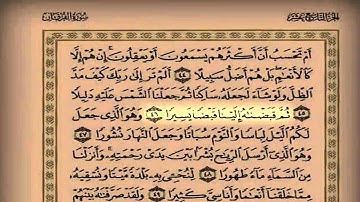 سورة الفرقان الجزء التاسع عشر
أَمْ تَحْسَبُ أَنَّ أَكْثَرَهُمْ يَسْمَعُونَ أَوْ يَعْقِلُونَ ۚ إِنْ هُمْ إِلَّا
كَالْأَنْعَامِ ۖ بَلْ هُمْ أَضَلُّ سَبِيلًا ٤٤ أَلَمْ تَرَ إِلَىٰ رَبِّكَ كَيْفَ مَدَّ
الظِّلَّ وَلَوْ شَاءَ لَجَعَلَهُ سَاكِنًا ثُمَّ جَعَلْنَا الشَّمْسَ عَلَيْهِ دَلِيلًا
٤٥ ثُمَّ قَبَضْنَاهُ إِلَيْنَا قَبْضًا يَسِيرًا ٤٦ وَهُوَ الَّذِي جَعَلَ
لَكُمُ اللَّيْلَ لِبَاسًا وَالنَّوْمَ سُبَاتًا وَجَعَلَ النَّهَارَ نُشُورًا ٤٧
وَهُوَ الَّذِي أَرْسَلَ الرِّيَاحَ بُشْرًا بَيْنَ يَدَيْ رَحْمَتِهِ ۚ وَأَنْزَلْنَا
مِنَ السَّمَاءِ مَاءً طَهُورًا ٤٨ لِنُحْيِيَ بِهِ بَلْدَةً مَيْتًا وَنُسْقِيَهُ
مِمَّا خَلَقْنَا أَنْعَامًا وَأَنَاسِيَّ كَثِيرًا ٤٩ وَلَقَدْ صَرَّفْنَاهُ بَيْنَهُمْ